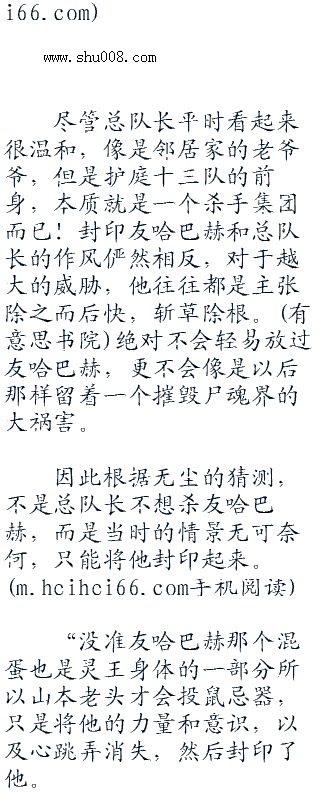 i66.com)
www.shu008.com
尽管总队长平时看起来
很温和，像是邻居家的老爷
爷，但是护庭十三队的前
身，本质就是一个杀手集团
而已！封印友哈巴赫和总队
长的作风俨然相反，对于越
大的威胁，他往往都是主张
除之而后快，斩草除根。(有
意思书院)绝对不会轻易放过
友哈巴赫，更不会像是以后
那样留着一个摧毁尸魂界的
大祸害。
因此根据无尘的猜测，
不是总队长不想杀友哈巴
赫，而是当时的情景无可奈
何，只能将他封印起来。
(m.hcihci66.com手机阅读)
“没准友哈巴赫那个混
蛋也是灵王身体的一部分所
以山本老头才会投鼠忌器，
只是将他的力量和意识，以
及心跳弄消失，然后封印了
他。